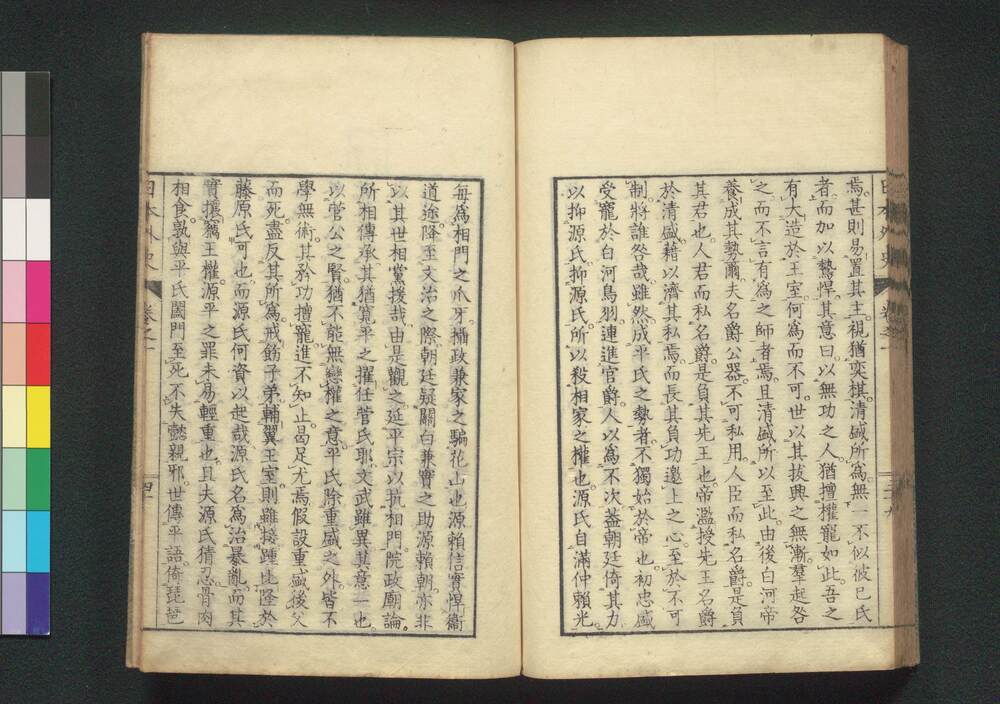 焉。甚則易置其主。視猶奕棋。清盛所為。無一不似彼已氏
者。而加以鷙悍。其意曰。以無功之人。猶擅權寵如此。吾之
有大造於王室。何為而不可。世以其拔興之無漸。羣起各
之。而不言有為之師者焉。且清盛所以至此。由後白河帝
養成其勢。爾夫名爵公器。不可私用。人臣而私名爵。是負
其君也。人君而私名爵。是負其先王也。帝濫授先王名爵
於清盛。藉以濟其私焉。而長其負功邀上之心。至於不可
制。將誰咎哉。雖然。成平氏之勢者。不獨始於帝也。初忠盛
受寵於白河鳥羽。連進官爵。人以為不次。葢朝廷倚其力
以抑源氏。抑源氏。所以殺相家之權也。源氏自滿仲賴光。
每為相門之爪牙。攝政兼家之騙花山也。源賴信實悍衞
道途。降至文治之際。朝廷疑關白兼實之助源賴朝。亦非
以其世相黨援哉。由是觀之。延平宗以抗相門。院政廟論。
所相傳承。其猶寬平之擢任菅氏耶。文武雖異。其意一也。
以菅公之賢。猶不能無戀權之意。平氏除重盛之外。皆不
學無術。其矜功擅寵。進不知止。曷足尤焉。假設重盛後父
而死。盡反其所為。戒飭子弟。輔翼王室。則雖接踵比隆於
藤原氏可也。而源氏何資以起哉。源氏名為治暴亂。而其
實攘竊王權。源平之罪。未易輕重也。且夫源氏猜忍。骨肉
相食。孰與平氏闔門至死。不失懿親邪。世傳平語。倚琵琶
日本外史 卷之一 四十